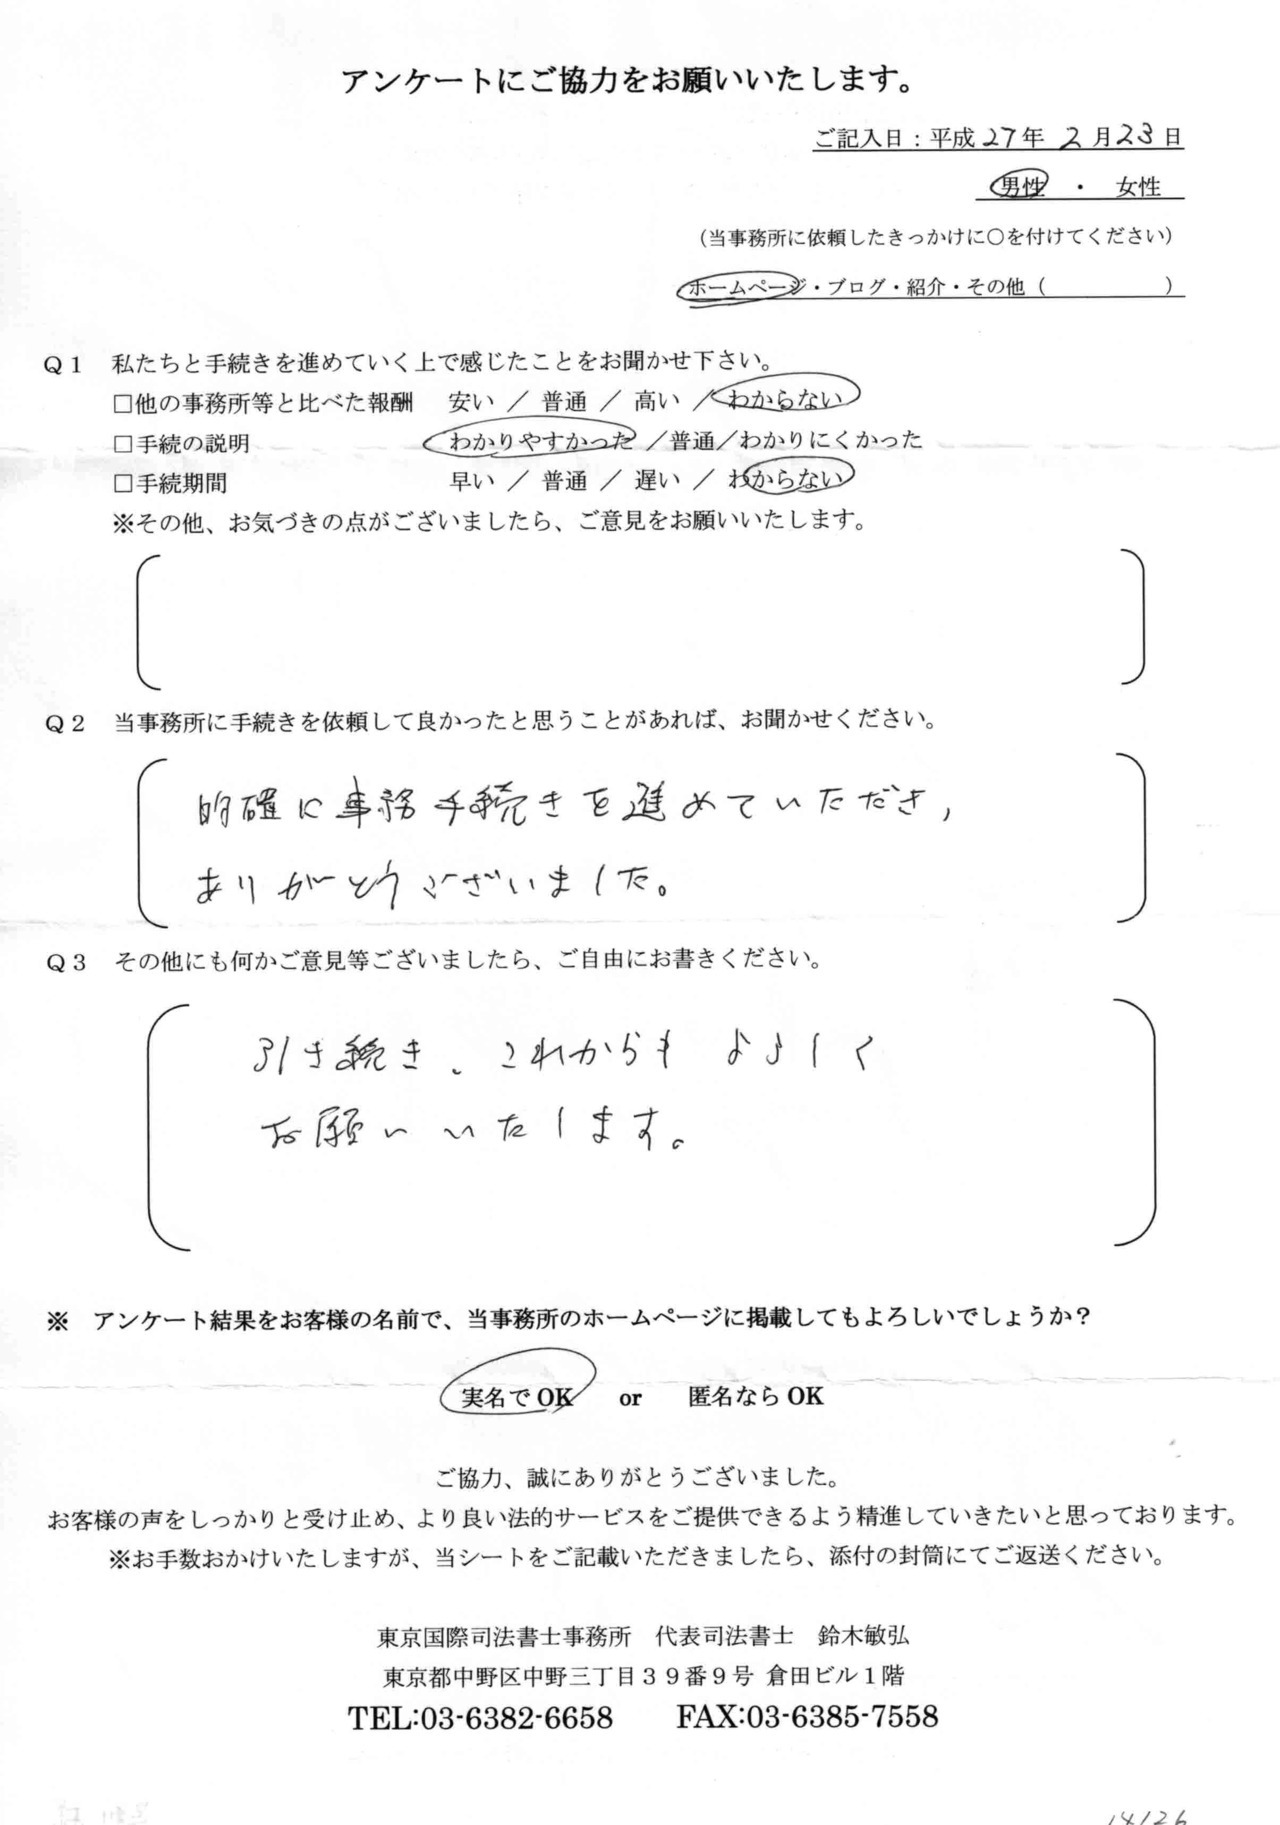 アンケートにご協力をお願いいたします。
ご記入日：平成27年 2月23日
男性 ・ 女性
（当事務所に依頼したきっかけに○を付けてください）
ホームページ・ブログ・紹介・その他（　　　　　）
Q１　私たちと手続きを進めていく上で感じたことをお聞かせ下さい。
□他の事務所等と比べた報酬　安い ／ 普通 ／ 高い ／わからない
□手続の説明　わかりやすかった ／普通／わかりにくかった
□手続期間　早い ／ 普通 ／ 遅い ／ わからない
※その他、お気づきの点がございましたら、ご意見をお願いいたします。
Q２　当事務所に手続きを依頼して良かったと思うことがあれば、お聞かせください。
的確に事務手続きを進めていただき，
ありがとうございました。
Q３　その他にも何かご意見等ございましたら、ご自由にお書きください。
引き続き、これからもよろしく
お願いいたします。
※　アンケート結果をお客様の名前で、当事務所のホームページに掲載してもよろしいでしょうか？
実名でOK　or　匿名ならOK
ご協力、誠にありがとうございました。
お客様の声をしっかりと受け止め、より良い法的サービスをご提供できるよう精進していきたいと思っております。
※お手数おかけいたしますが、当シートをご記載いただきましたら、添付の封筒にてご返送ください。
東京国際司法書士事務所　代表司法書士　鈴木敏弘
東京都中野区中野三丁目３９番９号 倉田ビル１階
TEL:03-6382-6658　FAX:03-6385-7558